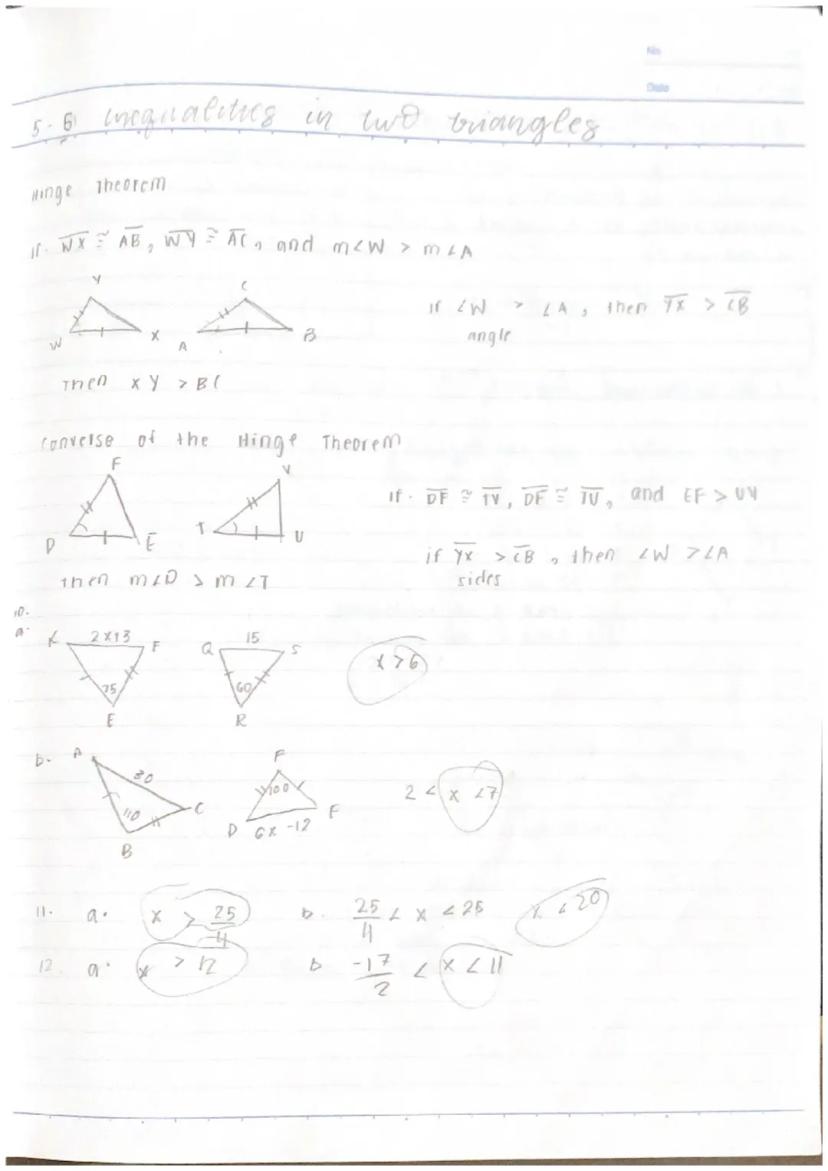 No
Date
5-6 inequalities in two triangles
Hinge Theorem
If WX ≅ AB, WY ≅ AC, and m∠W > m∠A
Y C
W X A B
if ∠W > ∠A, then YX > CB
angle
Then XY > BC
Converse of the Hinge Theorem
F V
D E T U
If. DF ≅ TV, DF ≅ TU, and EF > UV
then m∠D > m∠T
if YX > CB, then ∠W > ∠A
sides
10.
a. 2x+3 F Q 15 S x > 6
75 60
E R
b. A 80 F 2 < x < 7
110 C 100
B D 6x -12 F
11. a. x > 25/4 b. 25/4 < x < 25 x < 20
12. a. x > 12 b -17/2 < x < 11